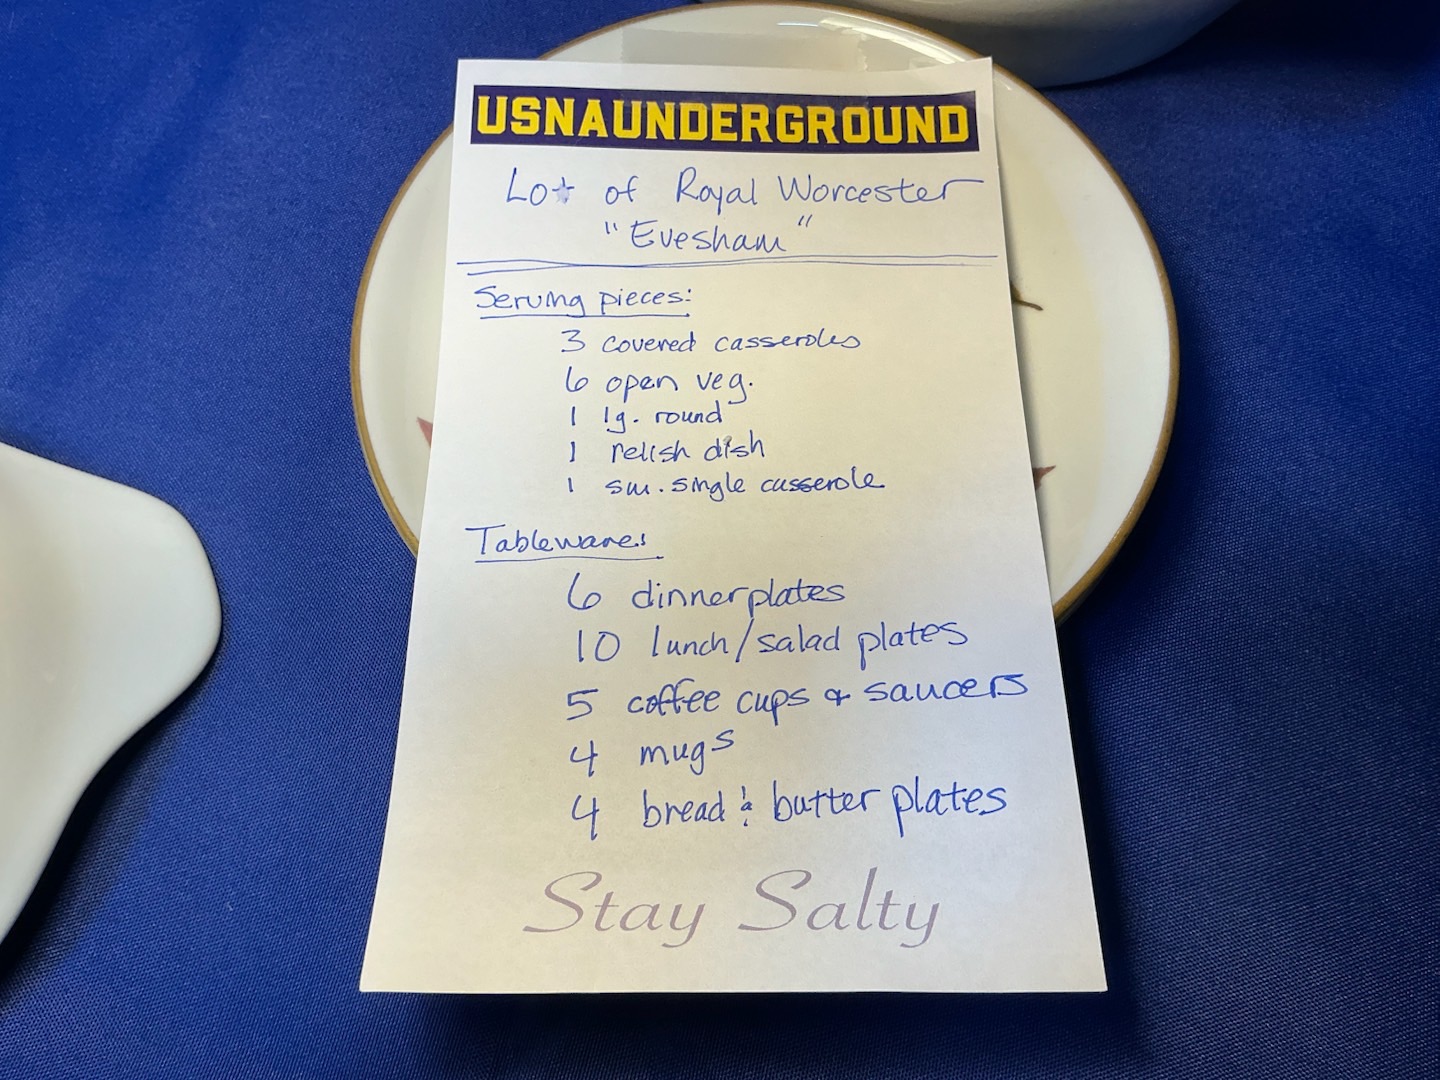 USNAUNDERGROUND
Lot of Royal Worcester
"Evesham"
Serving pieces:
3 covered casseroles
6 open veg.
1 lg. round
1 relish dish
1 sm. single casserole
Tableware:
6 dinner plates
10 lunch/salad plates
5 coffee cups & saucers
4 mugs
4 bread & butter plates
Stay Salty